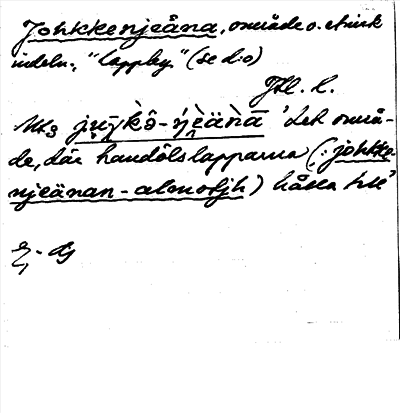 Johkkenjeåna, område o. etnisk
indeln., "lappby." (se d:o)
Jtl. l.
Mt3 ju̯ŋ̄k̀ô-ńèäǹā 'det områ-
de, där handölslapparna (: johkke-
njeänan-almetjh) hålla till'